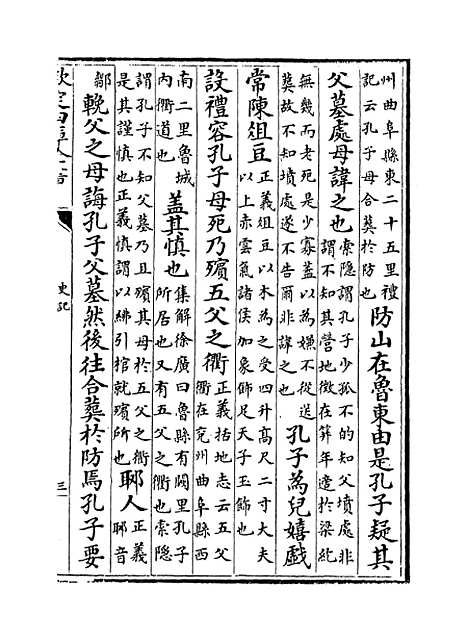 州曲阜縣東二十五里禮記云孔子母合葬於防也防山在魯東由是孔子疑其
父墓處母諱之也索隱謂孔子少孤不的知父墳處非謂不知其塋地徴在笄年適於梁紇
無幾而老死是少寡蓋以為嫌不從送葬故不知墳處遂不告爾非諱之也孔子為兒嬉戲
常陳俎豆正義俎豆以木為之受四升髙尺二寸大夫以上赤雲氣諸侯加象飾足天子玉飾也
設禮容孔子母死乃殯五父之衢正義括地志云五父衢在兖州曲阜縣西
南二里魯城内衢道也蓋其慎也集解徐廣曰魯縣有闕里孔子所居也又有五父之衢也索隱
謂孔子不知父墓乃且殯其母於五父之衢是其謹慎也正義慎謂以紼引棺就殯所也郰人正義郰音
鄹輓父之母誨孔子父墓然後往合葬於防焉孔子要
欽定四庫全書
史記
三